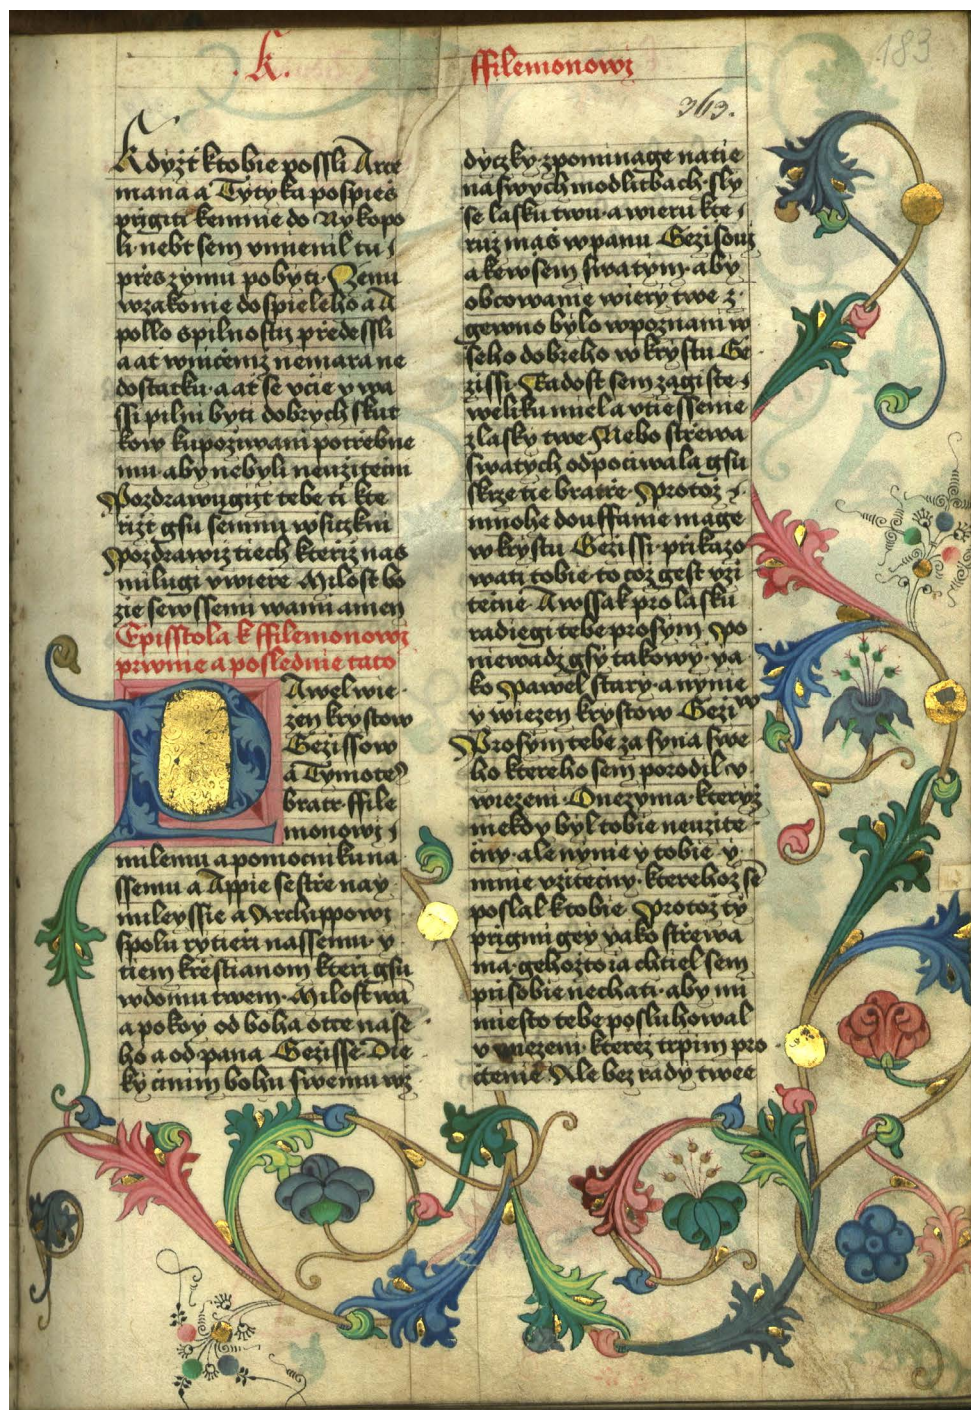 .k.
ffilemonowi
183
363.
Kdyžť k tobie possli Arte
mana a Tytyka pospies
prigiti kemnie do Nykopo
li· nebt sem vmienil tu
přes zymu pobyti· Zenu
wzakonie dospieleho a A
pollo s pilnostiz předessli
a at wničemz nemara ne
dostatku· a at se vcie y wa
ssi pilni byti dobrych skut
kow kupoziwani potřebne
mu· aby nebyli neužitečni
Pozdrawugizt tebe ti kte
rižt gsu semnu wsiczkni
Pozdrawiz tiech kteriz nas
milugi v wiere· Milost bo
zie sewssemi wami amen
Episstola k ffilemonowi
prwnie a poslednie tato
Pawel wie
zen krystow
Gezissow
a Tymote
bratr· ffile
monowi
milemu a pomocniku na
ssemu a Appie sestře nay
mileyssie a Archippowi
spolu rytieri nassemu· y
tiem křestianom kteri gsu
w domu twem· Milost wā
a pokoy od boha otce nase
ho a od pana Gezisse· Die
ky cinim bohu swemu wz
dyczky zpominage na tie
na swych modlitbach· sly
se lasku twu· a wieru kte
ruz mas w panu Gezisowi
a kewsem swatym· aby
obcowanie wiery twe z
gewno bylo w poznani w
seho dobreho w krystu Ge
zissi· Radost sem zagiste
weliku miel a vtiessenie
z lasky twe Nebo střewa
swatych odpociwala gsu
skrze tie bratře· Protoz
mnohe douffanie mage
w krystu Gezissi· přikazo
wati tobie· to coz gest vzi
tecne· Awssak pro lasku
radiegi tebe prosym Po
niewadz gsy takowy· ya
ko Pawel stary· a nynie
y wiezen krystow Gezi
Prosym tebe za syna swe
ho ktereho sem porodil v
wiezeni· Onezyma· kteryz
niekdy byl tobie neuzite
cny· ale nynie y tobie y
mnie vzitecny· kterehoz sē
poslal k tobie Protoz ty
prigmi gey yako střewa
ma· gehozto ia chtiel sem
pri sobie nechati· aby mi
miesto tebe posluhowal
v wiezeni· kterez trpim pro
čtenie· Ale bez rady twee